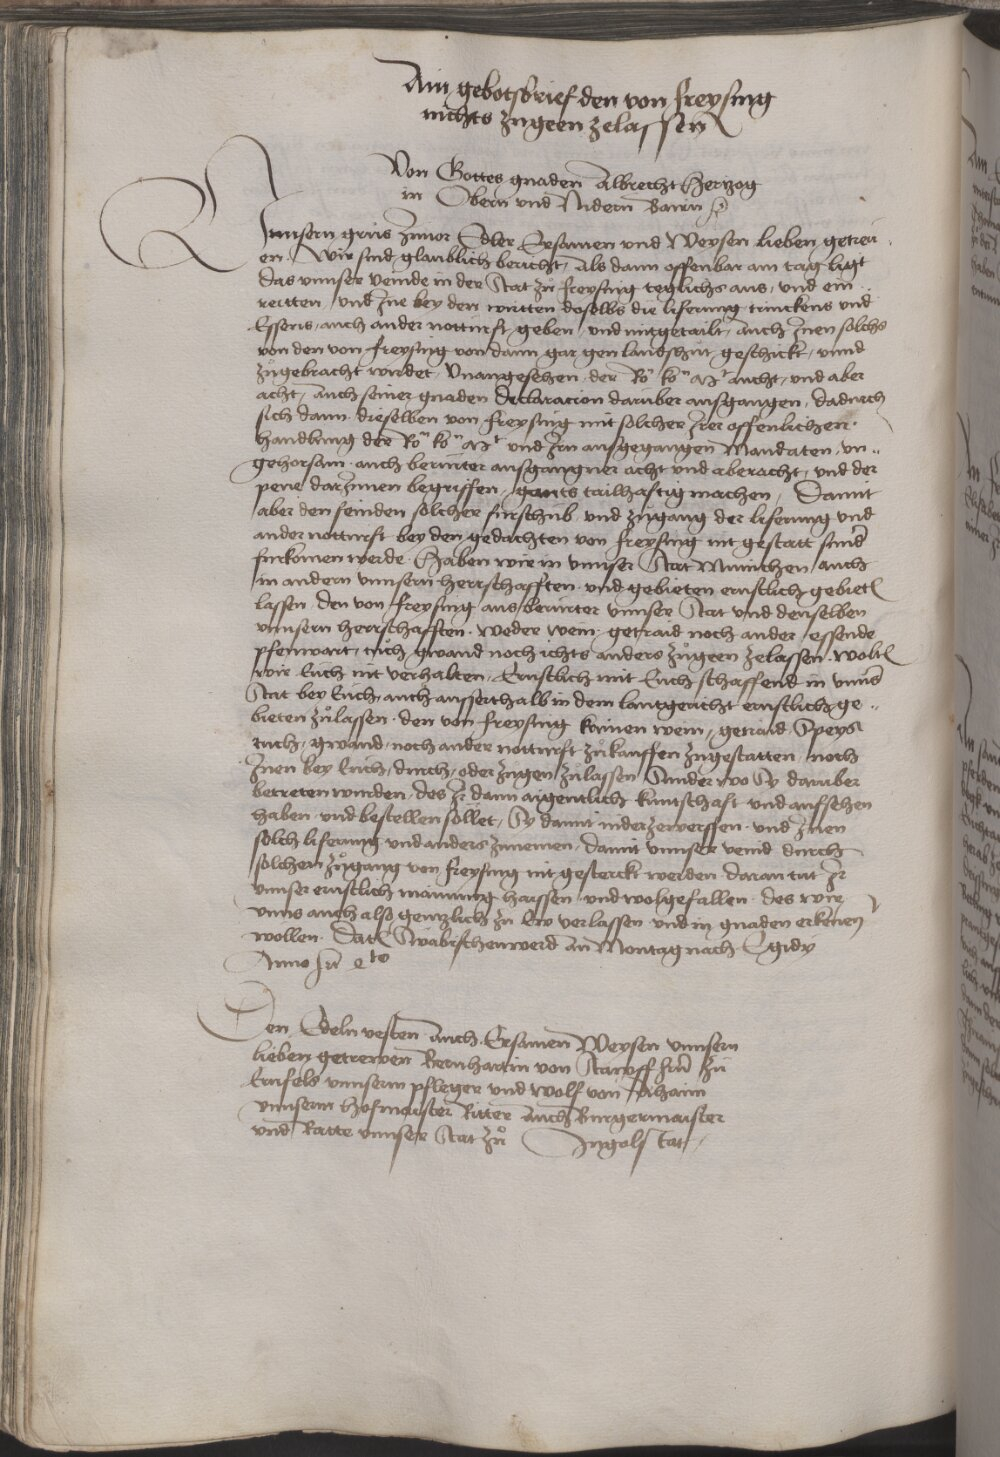 Ain gebotsbrief den von freysing
nichts zugeen zelassen
Von Gottes gnaden Albrecht Hertzog
in Obern und Nidern Bairn
Unnsern grus zuuor Edler Ersamen und Weysen lieben getreu
en. Wir sind glaublich bericht, als dann offenbar am tag ligt
das unnser veinde in der Stat zu freysing teglichs aus, und ein
reitten, und Ine bey den wirtten doselbs die liferung trinckens und
Essens, auch ander notturft geben, und mitgetailt, auch Inen solchs
von den von freysing von dann gar gen landshut geschickt, unnd
zugebracht wirdet, Unangesehen der Ro n ko n Mt aucht, und aber
acht, auch seiner gnaden Declaracion daruber ausgangen, dadurch
sich dann dieselben von freysing mit solcher Irer offenlichen
handlung der Ro n ko n Mt und Irn ausgegangen Mandaten, un
gehorsam auch berurter ausgangner acht und aberacht, und der
pene dar Innen begriffen, gants tailhafftig machen, Damit
aber den feinden solcher furschub und zugang der liferung und
ander notturft bey den gedachten von freysing nit gestatt sunder
furkomen werde. Haben wir in unnser Stat Munichen auch
in andern unnsern herrschafften und gebieten ernstlich gebiet
lassen den von freysing aus berurter unnser Stat und denselben
unnsern herrschafften. weder wein, getraid noch ander essende
pfenwart, tuch, gwand noch ichts anders zugeen zelassen. Wolt
wir Euch nit verhalten, Ernstlich mit Euch schaffend in unnser
Stat bey Euch, auch ausserthalb in dem lantgericht ernstlich ge
bieten zulassen. den von freysing keinen wein, getraid Speys
tuch, gwand, noch ander notturft zukauffen zugestatten, noch
Inen bey Euch, durch, oder zugen zulassen Sunder wo Sy daruber
betreten wurden, des Ir dann aigentlich kuntschaft und aufsehen
haben und bestellen sollet, Sy damit niderzewerffen und Inen
solch liferung und anders zunemen, damit unnser veind durch
solchen zugang von freysing nit gesterckt werden daran tut Ir
unnser ernstlich mainung haissen und wolgefallen. des wir
unns auch also gentzlich zu Ew verlassen und in gnaden erkenen
wollen. Dat Swabischenwerd an Montag nach Egidy
Anno In
Den Edeln vesten auch Ersamen Weysen unnsern
lieben getrewen Bernhartin von Stauff herrn zu
Ernfels unnserm pfleger und Wolf von
unnserm hofmaister Ritter auch Burgermaister
und Ratte unnser Stat zu Ingolstat